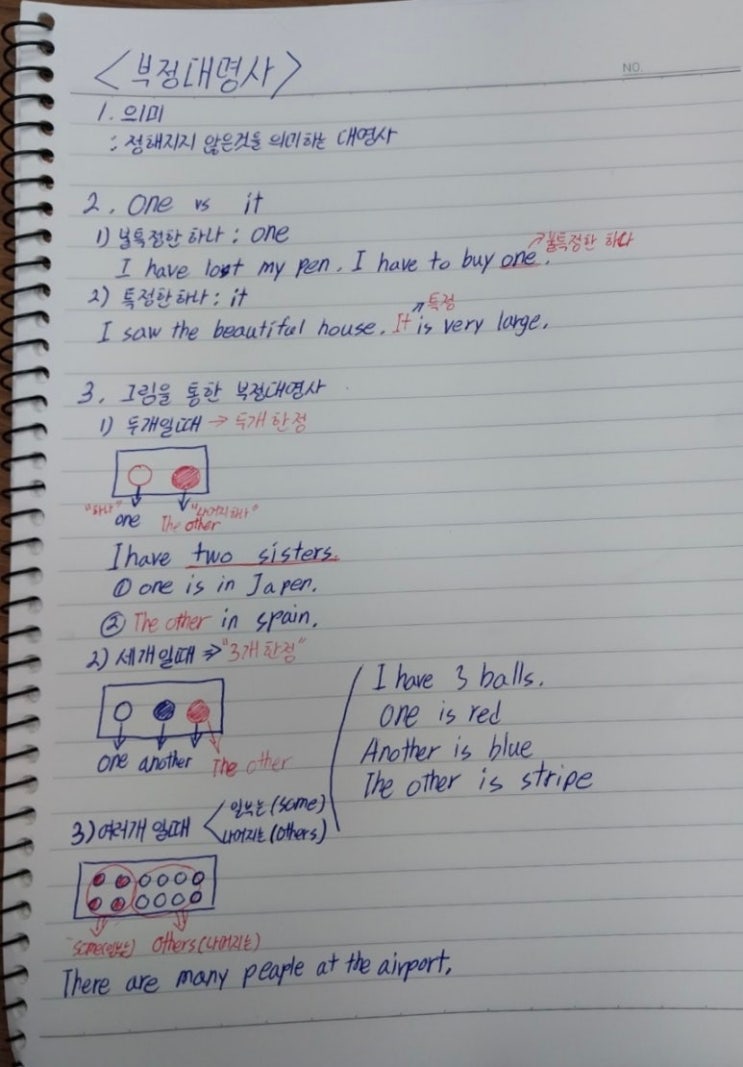 NO.
<부정대명사>
1. 의미
: 정해지지 않은것을 의미하는 대명사
2. one vs it
1) 불특정한 하나 : one
↗불특정한 하나
I have lost my pen. I have to buy one.
2) 특정한 하나 : it
↗특정
I saw the beautiful house. It is very large.
3. 그림을 통한 부정대명사
1) 두개일때 → 두개 한정
"하나" one
The other "나머지 하나"
I have two sisters.
① one is in Japen.
② The other in spain.
2) 세개일때 ⇒ "3개 한정"
one another The other
I have 3 balls.
one is red
Another is blue
The other is stripe
3) 여러개 일때
일부는 (some)
나머지는 (others)
some(일부는) others(나머지는)
There are many peaple at the airport.